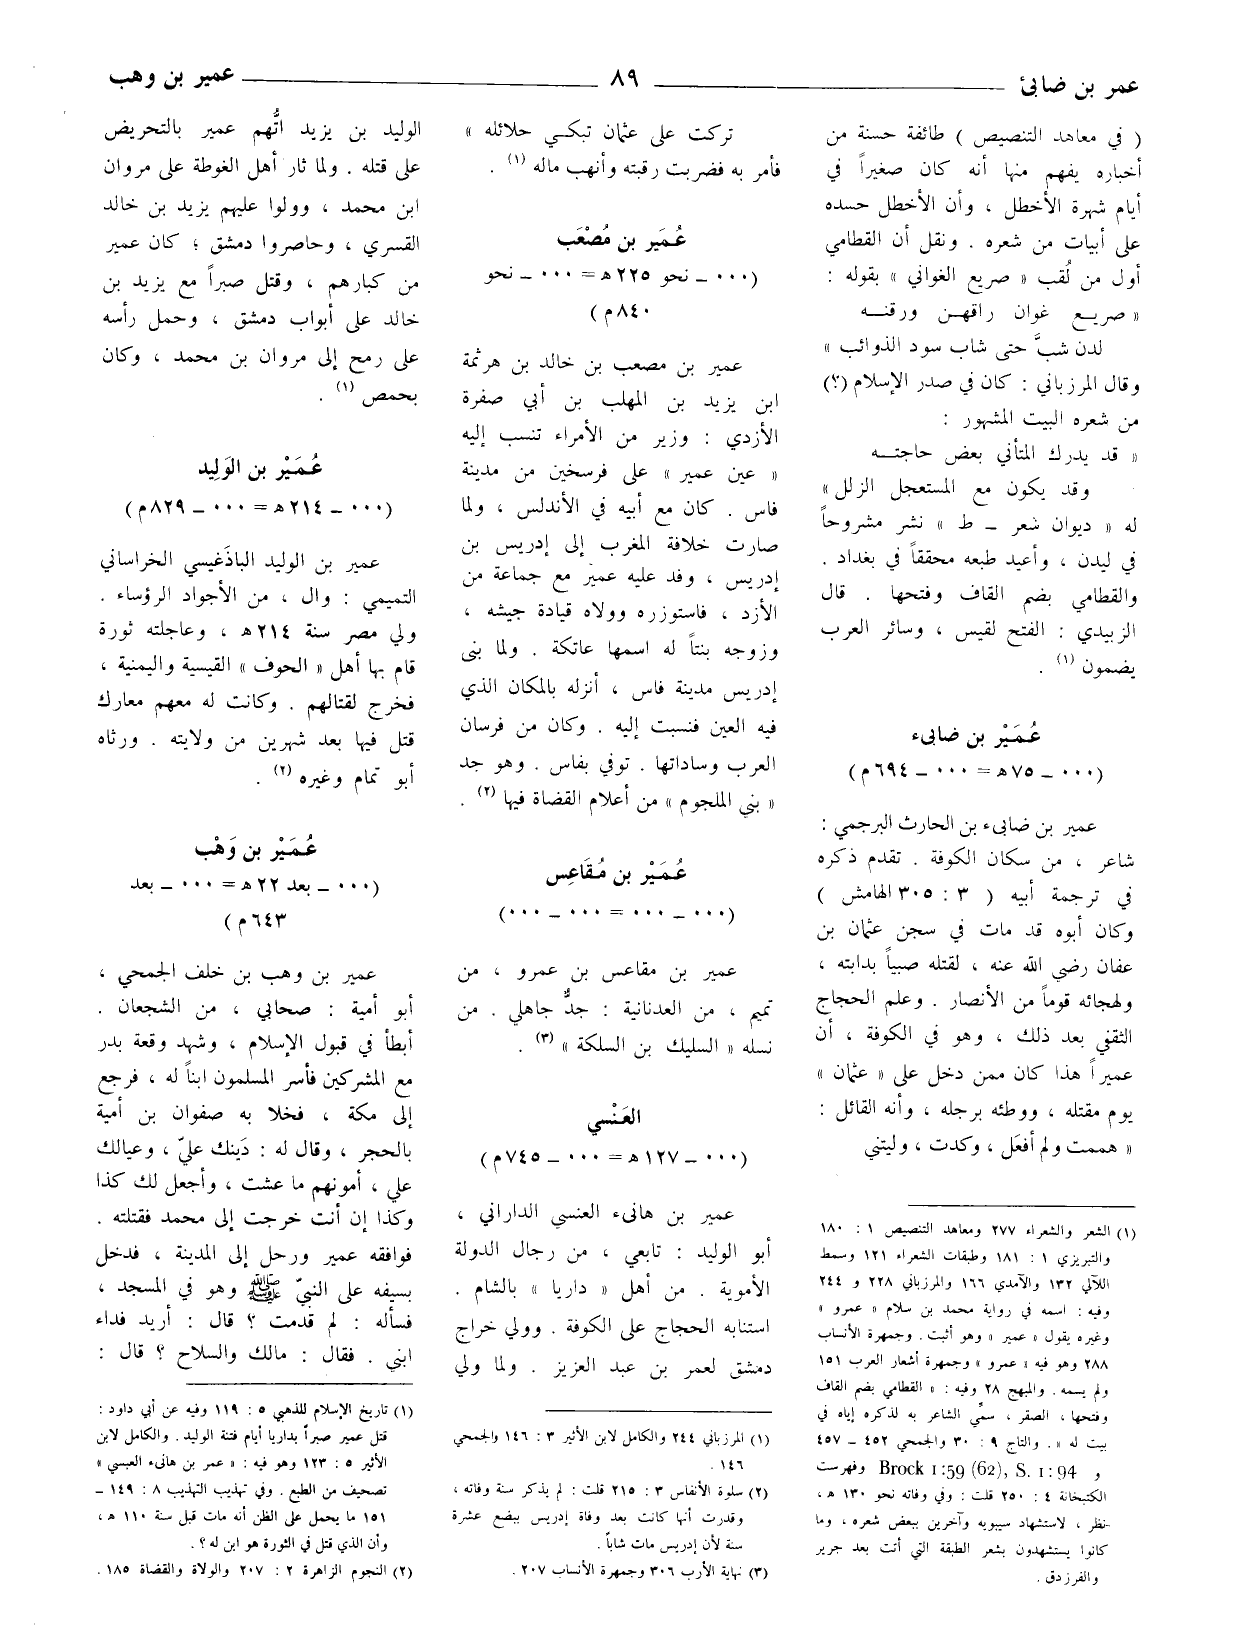 عمر بن ضابئ
٨٩
عمير بن وهب
( في معاهد التنصيص ) طائفة حسنة من
أخباره يفهم منها أنه كان صغيراً في
أيام شهرة الأخطل ، وأن الأخطل حسده
على أبيات من شعره . ونقل أن القطامي
أول من لُقب « صريع الغواني » بقوله :
« صريع غوان راقهن ورقنه
لدن شبَّ حتى شاب سود الذوائب »
وقال المرزباني : كان في صدر الإسلام (؟)
من شعره البيت المشهور :
« قد يدرك المتأني بعض حاجته
وقد يكون مع المستعجل الزلل »
له « ديوان شعر ـ ط » نشر مشروحاً
في ليدن ، وأعيد طبعه محققاً في بغداد .
والقطامي بضم القاف وفتحها . قال
الزبيدي : الفتح لقيس ، وسائر العرب
يضمون (١) .
عُمَيْر بن ضابىء
(٠٠٠ ـ ٧٥ه = ٠٠٠ ـ ٦٩٤م)
عمير بن ضابىء بن الحارث البرجمي :
شاعر ، من سكان الكوفة . تقدم ذكره
في ترجمة أبيه ( ٣ : ٣٠٥ الهامش )
وكان أبوه قد مات في سجن عثمان بن
عفان رضي الله عنه ، لقتله صبياً بدابته ،
ولهجائه قوماً من الأنصار . وعلم الحجاج
الثقفي بعد ذلك ، وهو في الكوفة ، أن
عميراً هذا كان ممن دخل على « عثمان »
يوم مقتله ، ووطئه برجله ، وأنه القائل :
« هممت ولم أفعَل ، وكدت ، وليتني
(١) الشعر والشعراء ٢٧٧ ومعاهد التنصيص ١ : ١٨٠
والتبريزي ١ : ١٨١ وطبقات الشعراء ١٢١ وسمط
اللآلي ١٣٢ والآمدي ١٦٦ والمرزباني ٢٢٨ و ٢٤٤
وفيه : اسمه في رواية محمد بن سلام « عمرو »
وغيره يقول « عمير » وهو أثبت . وجمهرة الأنساب
٢٨٨ وهو فيه « عمرو » وجمهرة أشعار العرب ١٥١
ولم يسمه . والمبهج ٢٨ وفيه : « القطامي بضم القاف
وفتحها ، الصقر ، سمِّي الشاعر به لذكره إياه في
بيت له » . والتاج ٩ : ٣٠ والجمحي ٤٥٢ ـ ٤٥٧
و Brock 1:59 (62), S. 1:94 وفهرست
الكتبخانة ٤ : ٢٥٠ قلت : وفي وفاته نحو ١٣٠ ه ،
نظر ، لاستشهاد سيبويه وآخرين ببعض شعره ، وما
كانوا يستشهدون بشعر الطبقة التي أتت بعد جرير
والفرزدق .
تركت على عثمان تبكي حلائله »
فأمر به فضربت رقبته وأنهب ماله (١) .
عُمَير بن مُصْعَب
(٠٠٠ ـ نحو ٢٢٥ه = ٠٠٠ ـ نحو
٨٤٠م)
عمير بن مصعب بن خالد بن هرثمة
ابن يزيد بن المهلب بن أبي صفرة
الأزدي : وزير من الأمراء تنسب إليه
« عين عمير » على فرسخين من مدينة
فاس . كان مع أبيه في الأندلس ، ولما
صارت خلافة المغرب إلى إدريس بن
إدريس ، وفد عليه عمير مع جماعة من
الأزد ، فاستوزره وولاه قيادة جيشه ،
وزوجه بنتاً له اسمها عاتكة . ولما بنى
إدريس مدينة فاس ، أنزله بالمكان الذي
فيه العين فنسبت إليه . وكان من فرسان
العرب وساداتها . توفي بفاس . وهو جد
« بني الملجوم » من أعلام القضاة فيها (٢) .
عُمَيْر بن مُقَاعِس
(٠٠٠ ـ ٠٠٠ = ٠٠٠ ـ ٠٠٠)
عمير بن مقاعس بن عمرو ، من
تميم ، من العدنانية : جدٌّ جاهلي . من
نسله « السليك بن السلكة » (٣) .
العَنْسي
(٠٠٠ ـ ١٢٧ ه = ٠٠٠ ـ ٧٤٥م)
عمير بن هانىء العنسي الداراني ،
أبو الوليد : تابعي ، من رجال الدولة
الأموية . من أهل « داريا » بالشام .
استنابه الحجاج على الكوفة . وولي خراج
دمشق لعمر بن عبد العزيز . ولما ولي
(١) المرزباني ٢٤٤ والكامل لابن الأثير ٣ : ١٤٦ والجمحي
١٤٦ .
(٢) سلوة الأنفاس ٣ : ٢١٥ قلت : لم يذكر سنة وفاته ،
وقدرت أنها كانت بعد وفاة إدريس ببضع عشرة
سنة لأن إدريس مات شاباً .
(٣) نهاية الأرب ٣٠٦ وجمهرة الأنساب ٢٠٧ .
الوليد بن يزيد اتُّهم عمير بالتحريض
على قتله . ولما ثار أهل الغوطة على مروان
ابن محمد ، وولوا عليهم يزيد بن خالد
القسري ، وحاصروا دمشق ؛ كان عمير
من كبارهم ، وقتل صبراً مع يزيد بن
خالد على أبواب دمشق ، وحمل رأسه
على رمح إلى مروان بن محمد ، وكان
بحمص (١) .
عُمَيْر بن الوَلِيد
(٠٠٠ ـ ٢١٤ه = ٠٠٠ ـ ٨٢٩م)
عمير بن الوليد الباذَغيسي الخراساني
التميمي : وال ، من الأجواد الرؤساء .
ولي مصر سنة ٢١٤ه ، وعاجلته ثورة
قام بها أهل « الحوف » القيسية واليمنية ،
فخرج لقتالهم . وكانت له معهم معارك
قتل فيها بعد شهرين من ولايته . ورثاه
أبو تمام وغيره (٢) .
عُمَيْر بن وَهْب
(٠٠٠ ـ بعد ٢٢ه = ٠٠٠ ـ بعد
٦٤٣م)
عمير بن وهب بن خلف الجمحي ،
أبو أمية : صحابي ، من الشجعان .
أبطأ في قبول الإسلام ، وشهد وقعة بدر
مع المشركين فأسر المسلمون ابناً له ، فرجع
إلى مكة ، فخلا به صفوان بن أمية
بالحجر ، وقال له : دَينك عليّ ، وعيالك
علي ، أمونهم ما عشت ، وأجعل لك كذا
وكذا إن أنت خرجت إلى محمد فقتلته .
فوافقه عمير ورحل إلى المدينة ، فدخل
بسيفه على النبيّ ﷺ وهو في المسجد ،
فسأله : لم قدمت ؟ قال : أريد فداء
ابني . فقال : مالك والسلاح ؟ قال :
(١) تاريخ الإسلام للذهبي ٥ : ١١٩ وفيه عن أبي داود :
قتل عمير صبراً بداريا أيام فتنة الوليد . والكامل لابن
الأثير ٥ : ١٢٣ وهو فيه : « عمر بن هانىء العبسي »
تصحيف من الطبع . وفي تهذيب التهذيب ٨ : ١٤٩ ـ
١٥١ ما يحمل على الظن أنه مات قبل سنة ١١٠ ه ،
وأن الذي قتل في الثورة هو ابن له ؟ .
(٢) النجوم الزاهرة ٢ : ٢٠٧ والولاة والقضاة ١٨٥ .